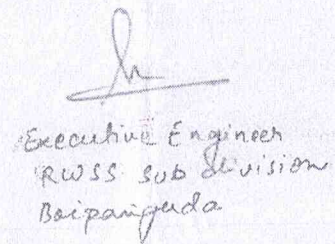 Executive Engineer
RWSS Sub division
Boipariguda